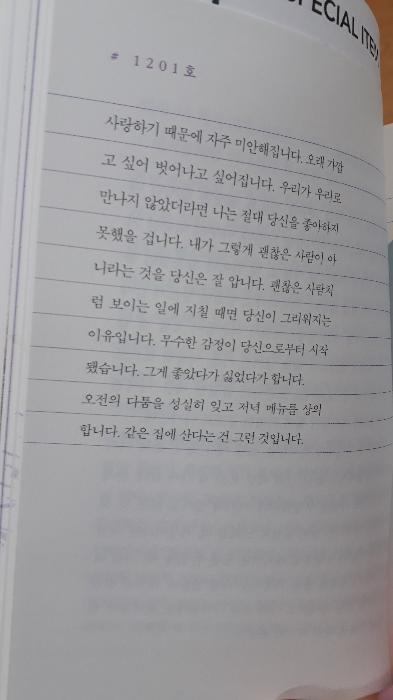 SPECIAL ITEM
# 1201호
사랑하기 때문에 자주 미안해집니다. 오래 가깝
고 싶어 벗어나고 싶어집니다. 우리가 우리로
만나지 않았더라면 나는 절대 당신을 좋아하지
못했을 겁니다. 내가 그렇게 괜찮은 사람이 아
니라는 것을 당신은 잘 압니다. 괜찮은 사람처
럼 보이는 일에 지칠 때면 당신이 그리워지는
이유입니다. 무수한 감정이 당신으로부터 시작
됐습니다. 그게 좋았다가 싫었다가 합니다.
오전의 다툼을 성실히 잊고 저녁 메뉴를 상의
합니다. 같은 집에 산다는 건 그런 것입니다.